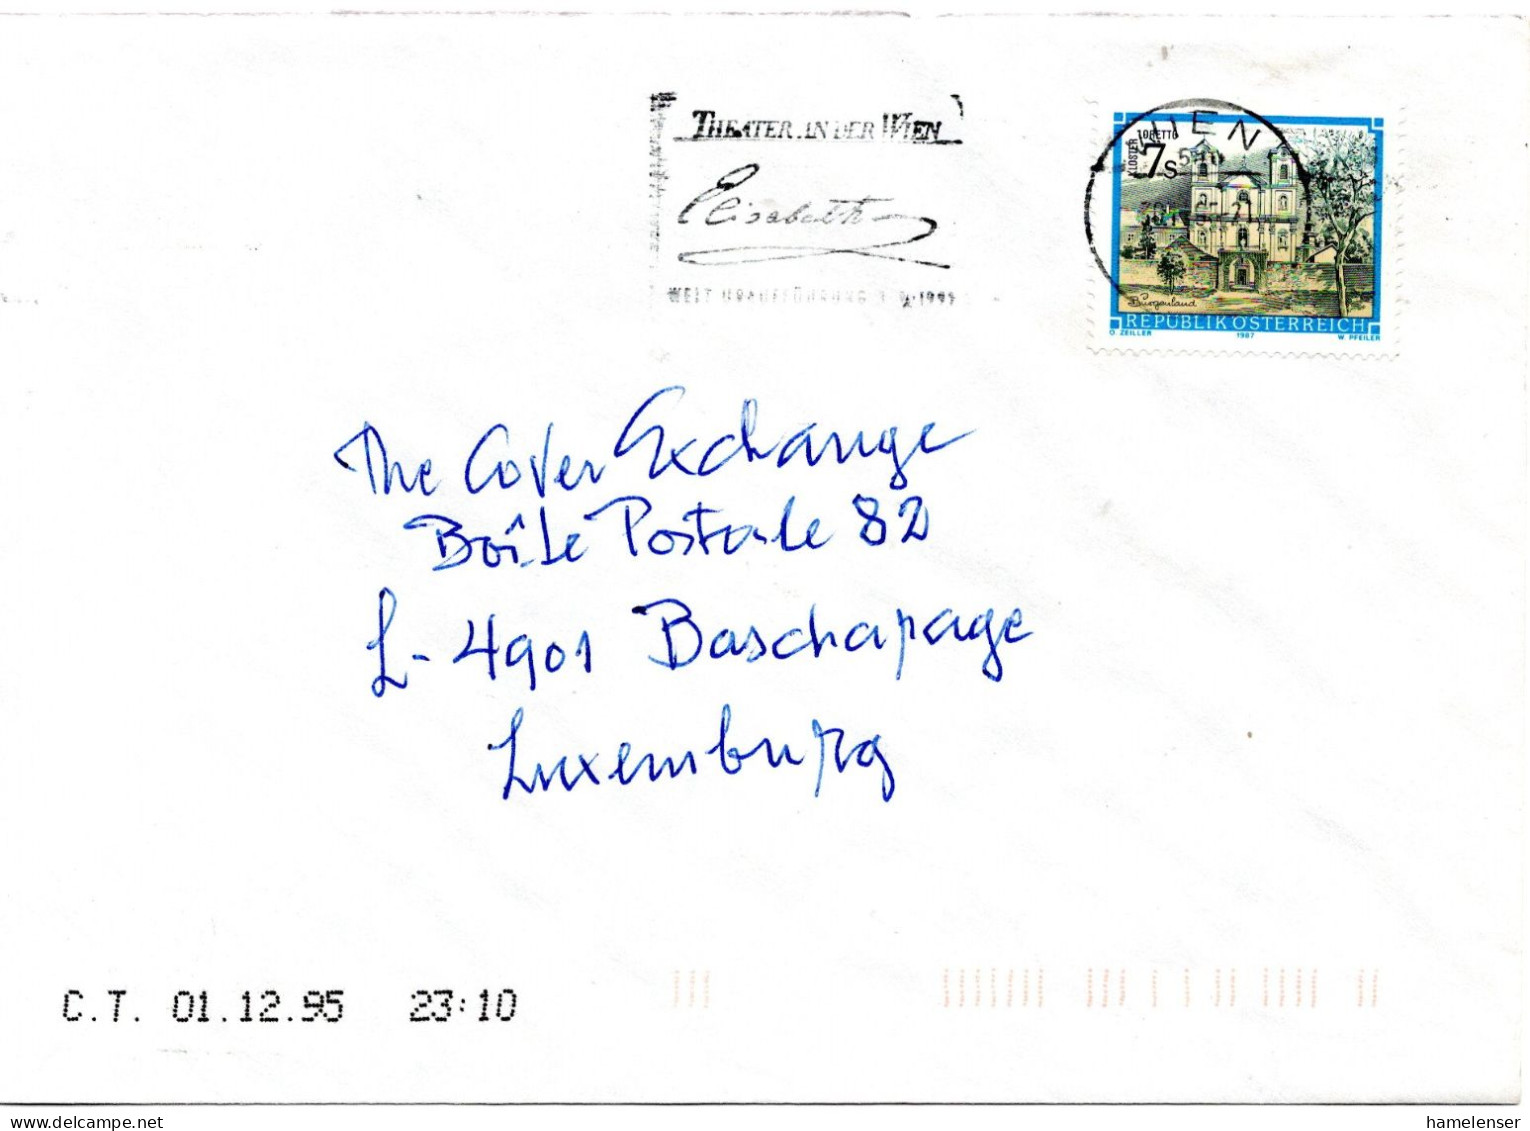 THEATER IN DER WIEN
Elisabeth
WELT URAUFFÜHRUNG
WIEN
KLOSTER LORETTO
7s
Burgenland
REPUBLIK ÖSTERREICH
O. ZEILLER 1987 W. PFEILER
The Cover Exchange
Boîte Postale 82
L-4901 Baschapage
Luxemburg
C.T. 01.12.95 23:10
hamelenser